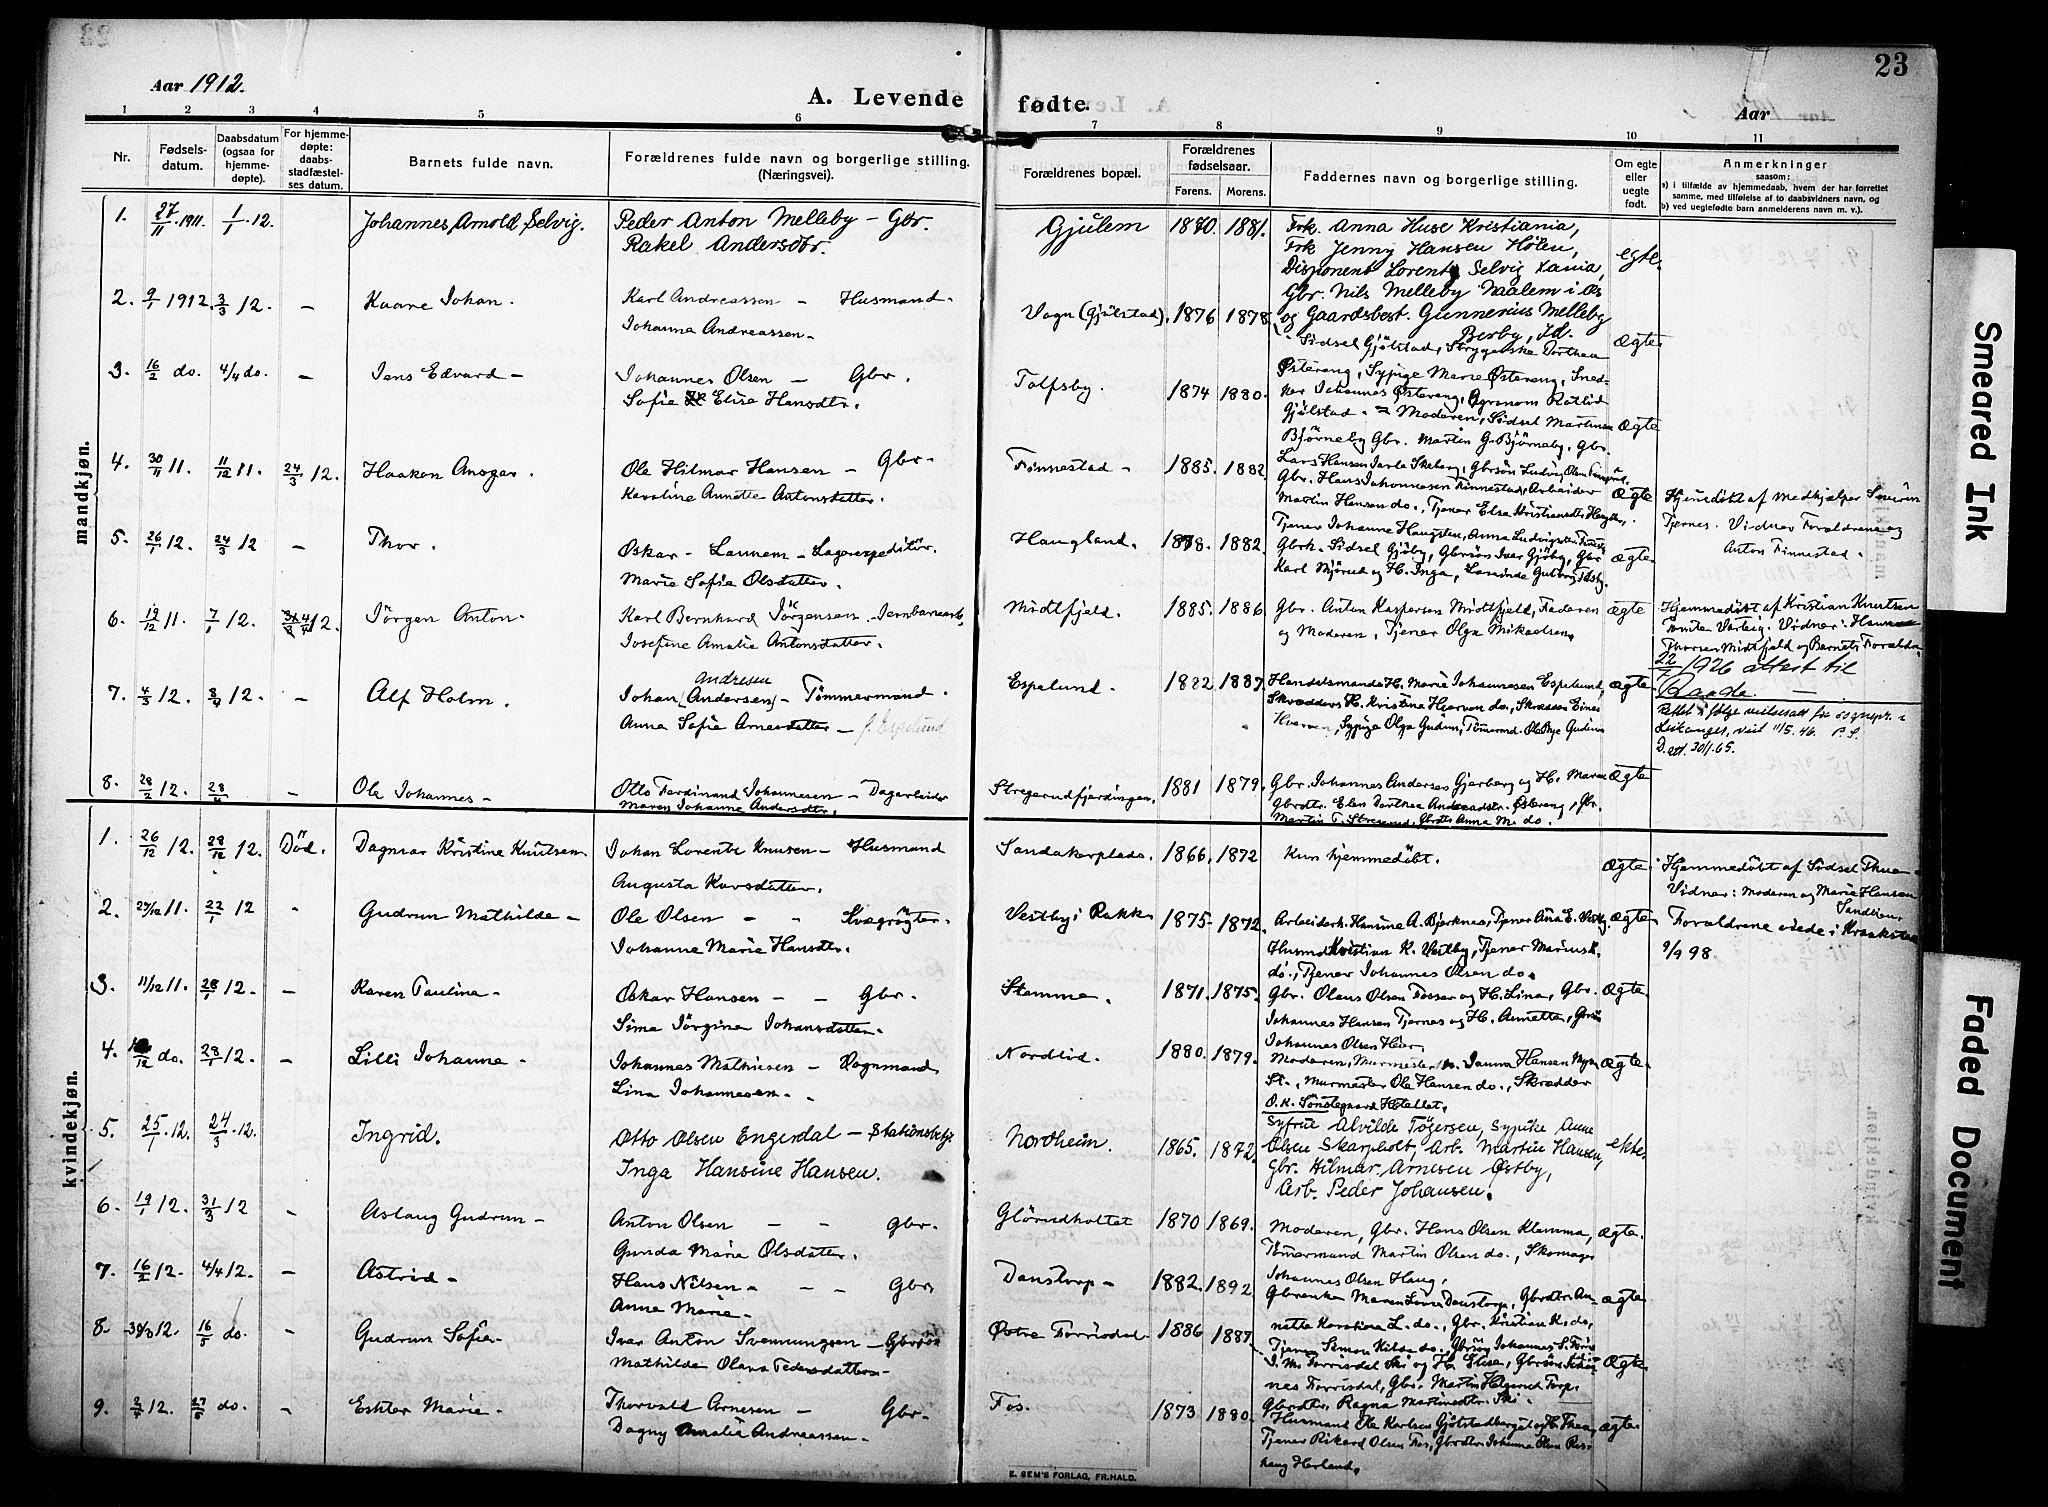 23
Aar 1912.
A. Levende fødte.
Aar
1 2 3 4 5 6 7 8 9 10 11
Nr.
Fødsels-
datum.
Daabsdatum
(ogsaa for
hjemme-
døpte).
For hjemme-
døpte:
daabs-
stadfæstel-
ses datum.
Barnets fulde navn.
Forældrenes fulde navn og borgerlige stilling.
(Næringsvei).
Forældrenes bopæl.
Forældrenes
fødselsaar.
Farens. Morens.
Faddernes navn og borgerlige stilling.
Om egte
eller
uegte
født.
Anmerkninger
saasom:
a) i tilfælde av hjemmedaab, hvem der har forrettet
samme, med tilføielse af to daabsvidners navn, og
b) ved uegtefødte barn anmelderens navn m. v.).
mandkjøn.
1. 27/11 1911. 1/1 12. Johannes Arnold Selvig. Peder Anton Melleby – Gbr. Gjulem 1880. 1881. Frk. Anna Huse Kristiania, egte.
Rakel Andersdtr. Frk Jenny Hansen Hølen,
Disponent Lorentz Selvig Xania,
Gbr. Nils Melleby Naalem i Ås
og Gaardsbest. Gunnerius Melleby
Berby, Id.
2. 9/1 1912. 3/3 12. – Kaare Johan. Karl Andreassen – Husmand. Vogn (Gjølstad). 1876 1878. Ægte
Johanna Andreassen – Sidsel Gjølstad, Strygerske Dorthea
Østereng, Sypige Marie Østereng, Sned-
ker Johannes Østereng, Agronom
Gjølstad. –
3. 16/2 do. 4/4 do. – Jens Edvard – Johannes Olsen – Gbr. Tolfsby. 1874 1880. Moderen, Sidsel Ægte
Sofie Elise Hansdtr. Bjørneby Gbr. Martin G. Bjørneby, Gbr.
Lars Hansen
4. 30/11 11. 11/12 11. 24/3 12. Haakon Ansgar. Ole Hilmar Hansen – Gbr – Finnestad – 1885. 1882 Ægte
Karoline Annette Antonsdatter. Gbr. Hans Johannesen Finnestad, Arbeider
Martin Hansen do., Tjener Elsa
Hjemedøbt af medhjælper
Tjernes. Vidner Forældrene og
Anton Finnestad.
5. 26/1 12. 24/3 12 – Thor. Oskar – Launem – Lagerexpeditør. Haugland. 1878. 1882. Tjener Johanne Haugsten, Ægte
Marie Sofie Olsdatter. Gbrk. Sidsel Gjøby, Gbrsøn Ivar Gjøby, Gbr
Karl Mjørud og H. Inga,
6. 19/12 11. 7/1 12. 4/4 12. Jörgen Anton. Karl Bernhard Jörgensen. Jernbanearb. Midtfjeld. 1885. 1886 Gbr. Anton Kaspersen Midtfjeld, Faderen Ægte
Josefine Amalie Antonsdatter. og Moderen, Tjener Olga Mikaelsen.
Hjemmedøbt af Kristian Knutsen
Varteig. Vidner:
Midtfjeld og Barnets Forældre.
7. 4/3 12. 8/4 12. – Alf Holm. Johan (Andersen) Andresen – Tömmermand. Espelund. 1882 1887. Handelsmands H. Marie Johannesen Espelund, Ægte.
Anna Sofie Arnesdatter – f. Espelund Skrædders H. Kristine Hjerven do., Skrædder Einer
Sypige Olga Gudim, Tömermd. Gudim
22/7 1926 attest til
Raade. –
Rettet i følge
11/5.46. P.S.
30/1.65.
8. 28/2 12. 28/4 – Ole Johannes – Otto Ferdinand Johannesen – Dagarbeider Stregerudfjerdingen. 1881 1879. Gbr. Johannes Andersen Gjerberg og H. Maren Ægte
Maren Johanne Andersdtr. Gbrdtr. Elen Dorthea Østereng, Gbr.
Martin T. Stregerud, Gbrdtr. Anna M. do.
kvindekjøn.
1. 26/12 12. 28/12 12. Död. Dagmar Kristine Knutsen. Johan Lorents Knusen – Husmand Sandakerplads. 1866. 1872 Kun hjemmedøbt. Ægte.
Augusta Karsdatter.
Hjemmedøbt af Sidsel Thue –
Vidner: Moderen og Marie Hansen
2. 29/12 11. 22/1 12 – Gudrun Mathilde – Ole Olsen – – Kvægrøgter. Vestby i Rakk 1875 – 1872. Arbeiderh. Hansine A. Bjerknes, Tjener Ægte – Forældrene viede i Kraakstad
Johanne Marie Hansdtr. Husmd Kristian K. Vestby, Tjener Marius K. 9/9 98
do., Tjener Johannes Olsen do.
3. 11/12 11. 28/1 12. – Karen Paulina – Oskar Hansen – – Gbr. Stemme. 1871. 1875. Gbr. Olaus Olsen Fosser og H. Lina, Gbr. Ægte.
Sima Jörgine Johansdatter. Johannes Hansen Tjernes og H. Annette,
Johannes Olsen Heier.
4. do. 28/1 12. – Lilli Johanne – Johannes Mathisen – Vognmand. Nordlid. 1880. 1879. Moderen, Murmester Hansen Ægte.
Lina Johannesen – . St., Murmester Ole Hansen do., Skrædder
O. K. Sönstegaard Hotellet.
5. 25/1 12. 24/3 12. Ingrid. Otto Olsen Engerdal – Stationsbetj. Nordheim. 1865. 1872. Syfrue Alvilde Tögersen, Sypike Anne ekte.
Inga Hansine Hansen. Olsen Skarpholt, Arb. Martin Hansen,
Gbr. Hilmar Arnesen Østby,
Arb. Peder Johansen.
6. 19/1 12. 31/3 12 – Aslaug Gudrun – Anton Olsen – – Gbr. Glörudholtet 1870 1869. Moderen, Gbr. Hans Olsen Klemma, Ægte.
Gunda Marie Olsdatter. Tömermand Martin Olsen do., Skomager
Johannes Olsen Haug.
7. 16/2 12. 4/4 12. – Astrid – Hans Nilsen – – Gbr. Danstorp – 1882. 1892 Gbrenke Maren Danstorp, Gbrdtr. An- Ægte
Anne Marie – nette Karoline L. do., Gbr. Kristian K. do,
Tjener Simon
8. 30/3 12. 16/5 do. – Gudrun Sofie – Ivar Anton Svenningsen – Gbrsön Østre Forrisdal. 1886 1887. Ægte
Mathilde Olava Pedersdatter. Forrisdal Ski og H. Elise,
Forrisdal, Gbr. Martin Torp.
Gbrdtr. Ragna Martinsdtr. Ski –
9. 2/4 12. 27/5 do. – Esther Marie – Thorvald Arnesen – Gbr. Fos. 1873 1880. Husmand Ole Karlsen Ægte
Dagny Amalie Andreassen – Tjener Rikard Olsen Fos, Gbrdtr. Johanne Olsen
E. SEM'S FORLAG, FR.HALD.
Smeared Ink
Faded Document